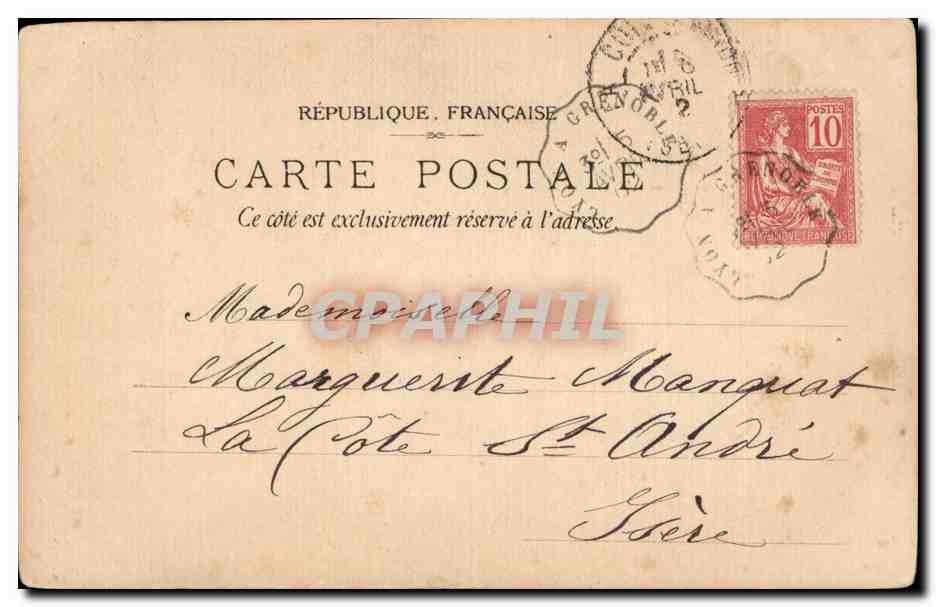 RÉPUBLIQUE FRANÇAISE
CARTE POSTALE
Ce côté est exclusivement réservé à l'adresse.
POSTES
10
RÉPUBLIQUE FRANÇAISE
AVRIL
GRENOBLE
LYON
GRENOBLE
LYON
CPAPHIL
Mademoiselle
Marguerite Manquat
La Côte St André
Isère